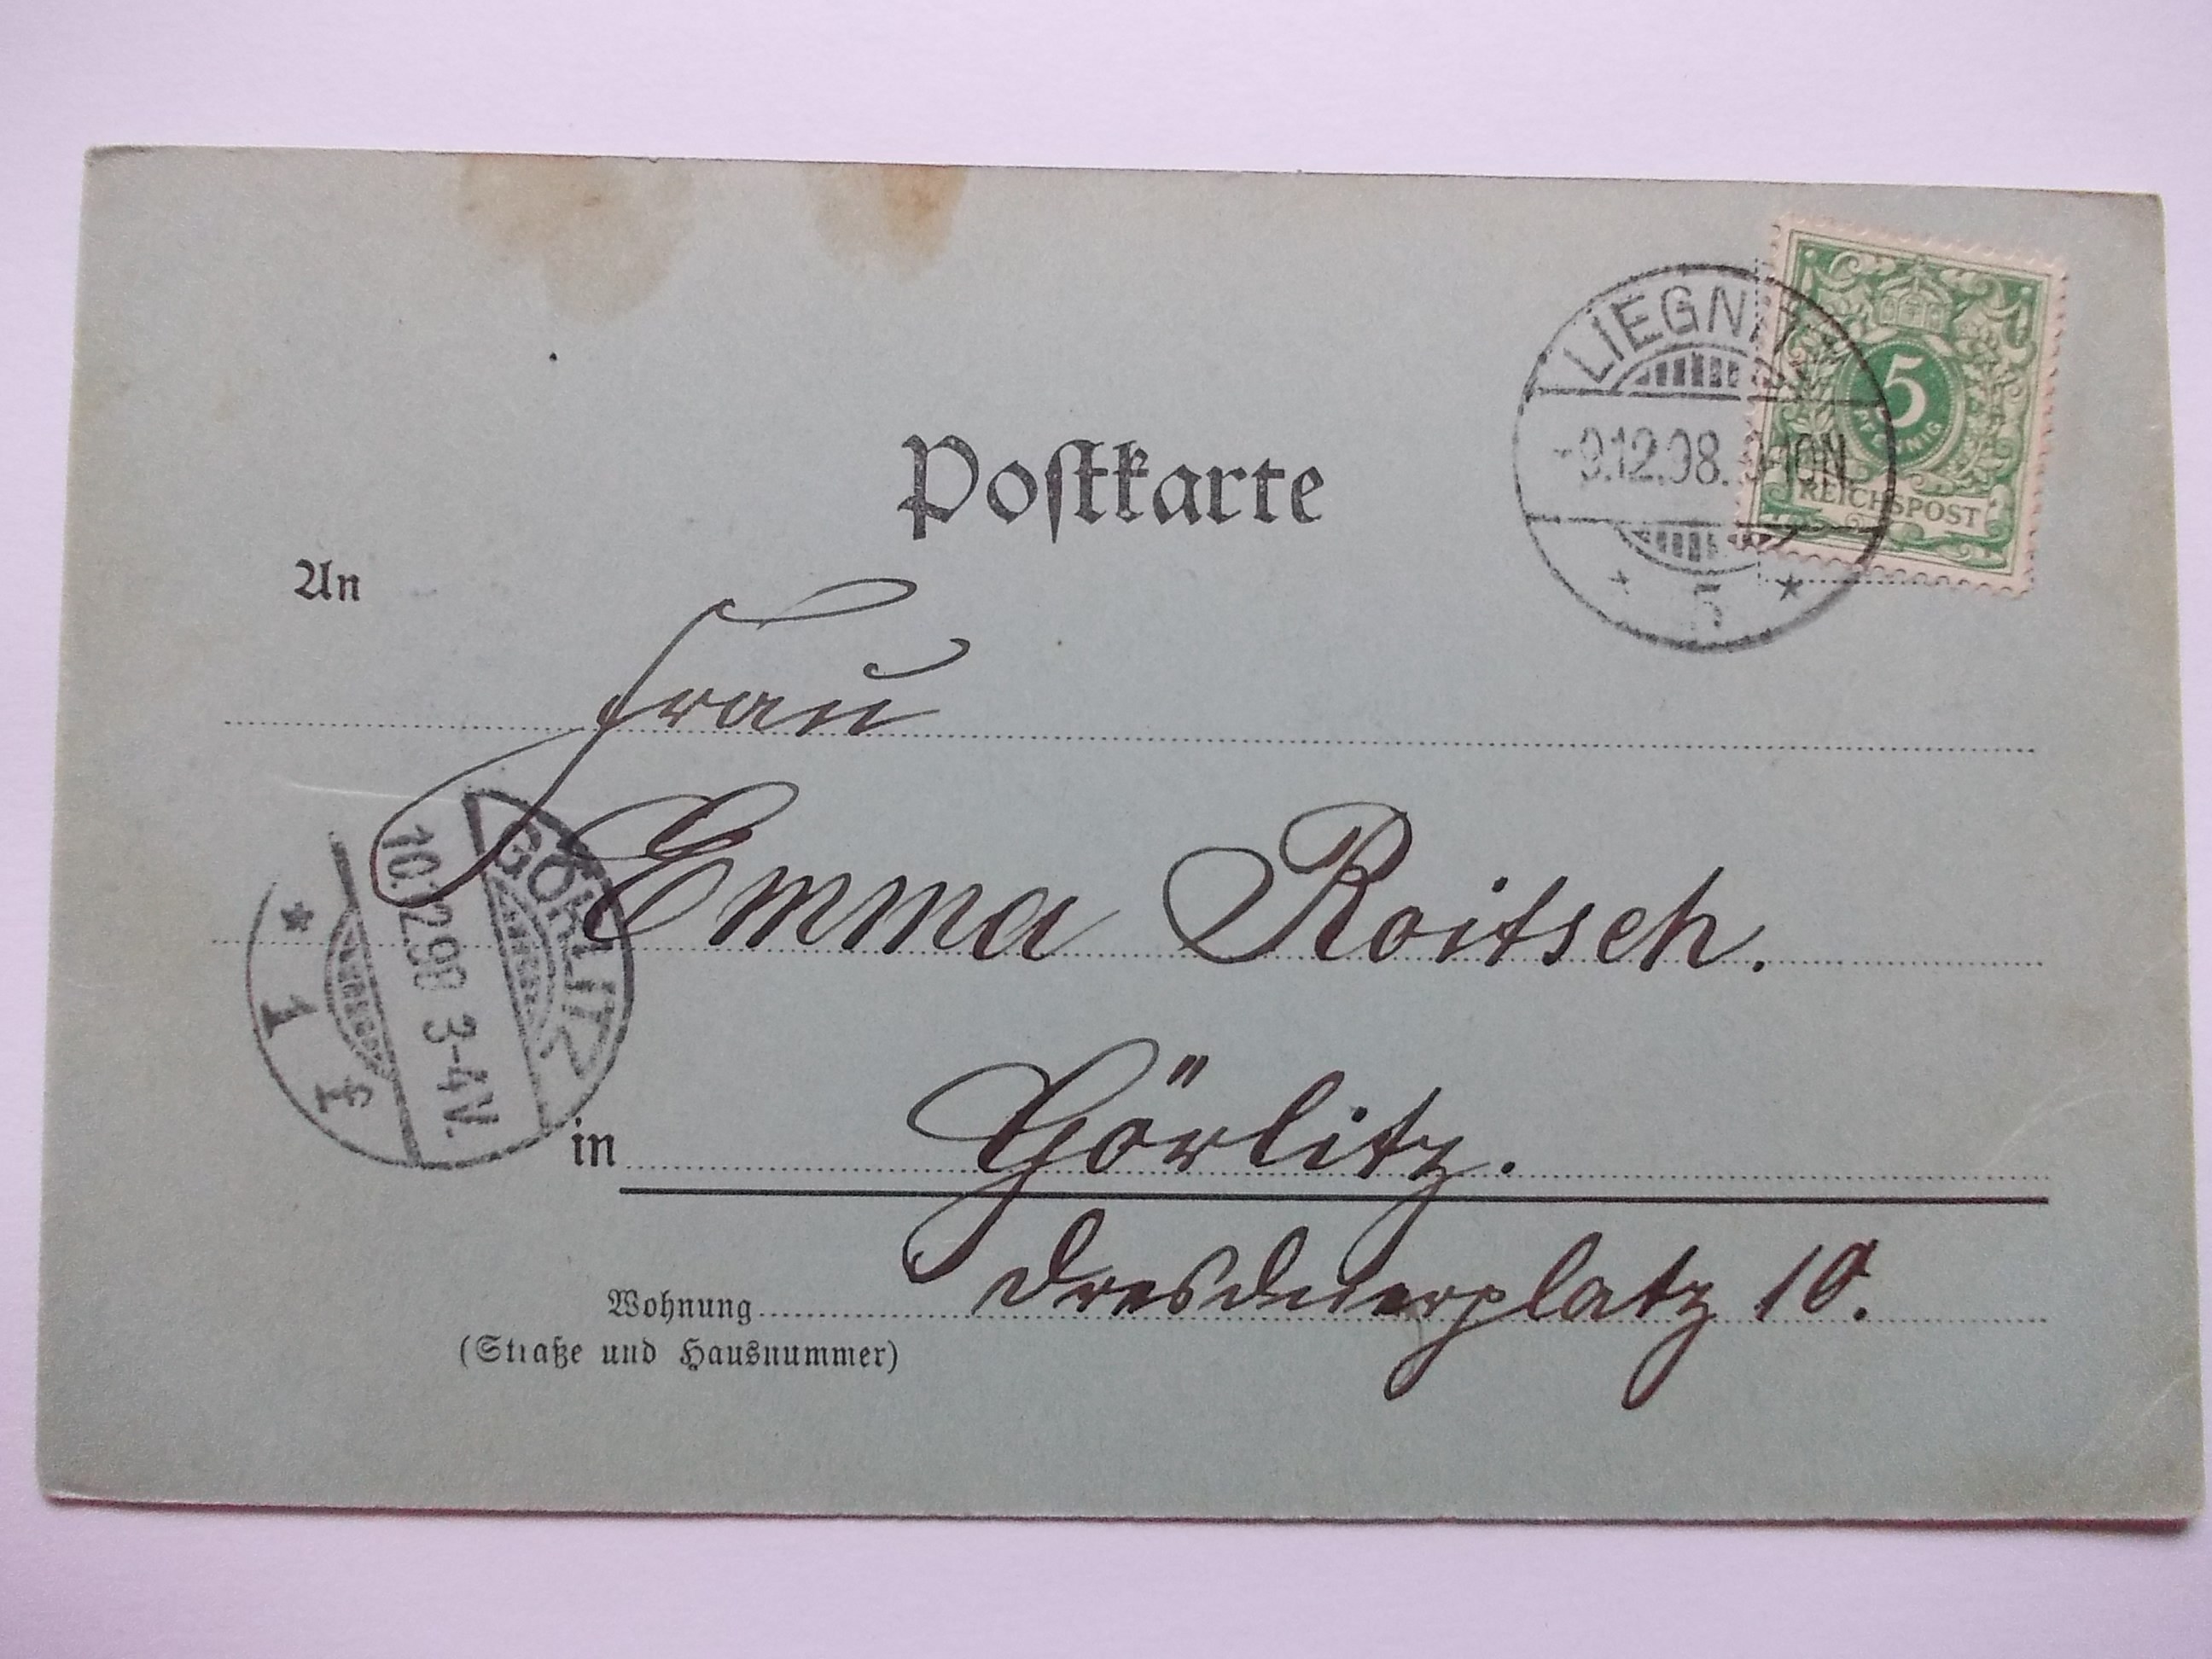 Postkarte
LIEGNITZ
-9.12.98. 9-10N
* 5 *
5
PFENNIG
REICHSPOST
An
Frau
Emma Roitsch.
GÖRLITZ
10.12.98 3-4V.
* 1 f
in Görlitz.
Wohnung Dresdnerplatz 10.
(Straße und Hausnummer)